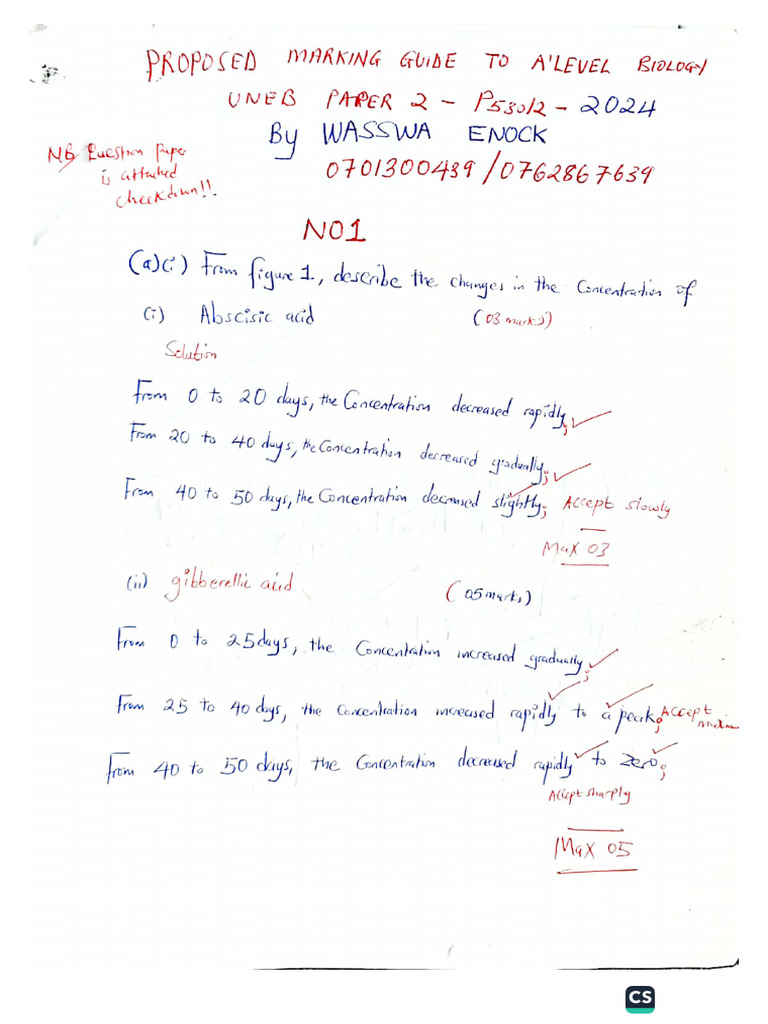 PROPOSED MARKING GUIDE TO A'LEVEL BIOLOGY
UNEB PAPER 2 - P530/2 - 2024
By WASSWA ENOCK
0701300439/0762867639
NB Question paper
is attached
check down!!
NO1
(a)(i) From figure 1, describe the changes in the concentration of
(i) Abscisic acid (03 marks)
Solution
From 0 to 20 days, the concentration decreased rapidly;
From 20 to 40 days, the concentration decreased gradually;
From 40 to 50 days, the concentration decreased slightly; Accept slowly
Max 03
(ii) gibberellic acid (05 marks)
From 0 to 25 days, the concentration increased gradually;
From 25 to 40 days, the concentration increased rapidly to a peak; Accept
From 40 to 50 days, the concentration decreased rapidly to zero;
Accept sharply
Max 05
CS